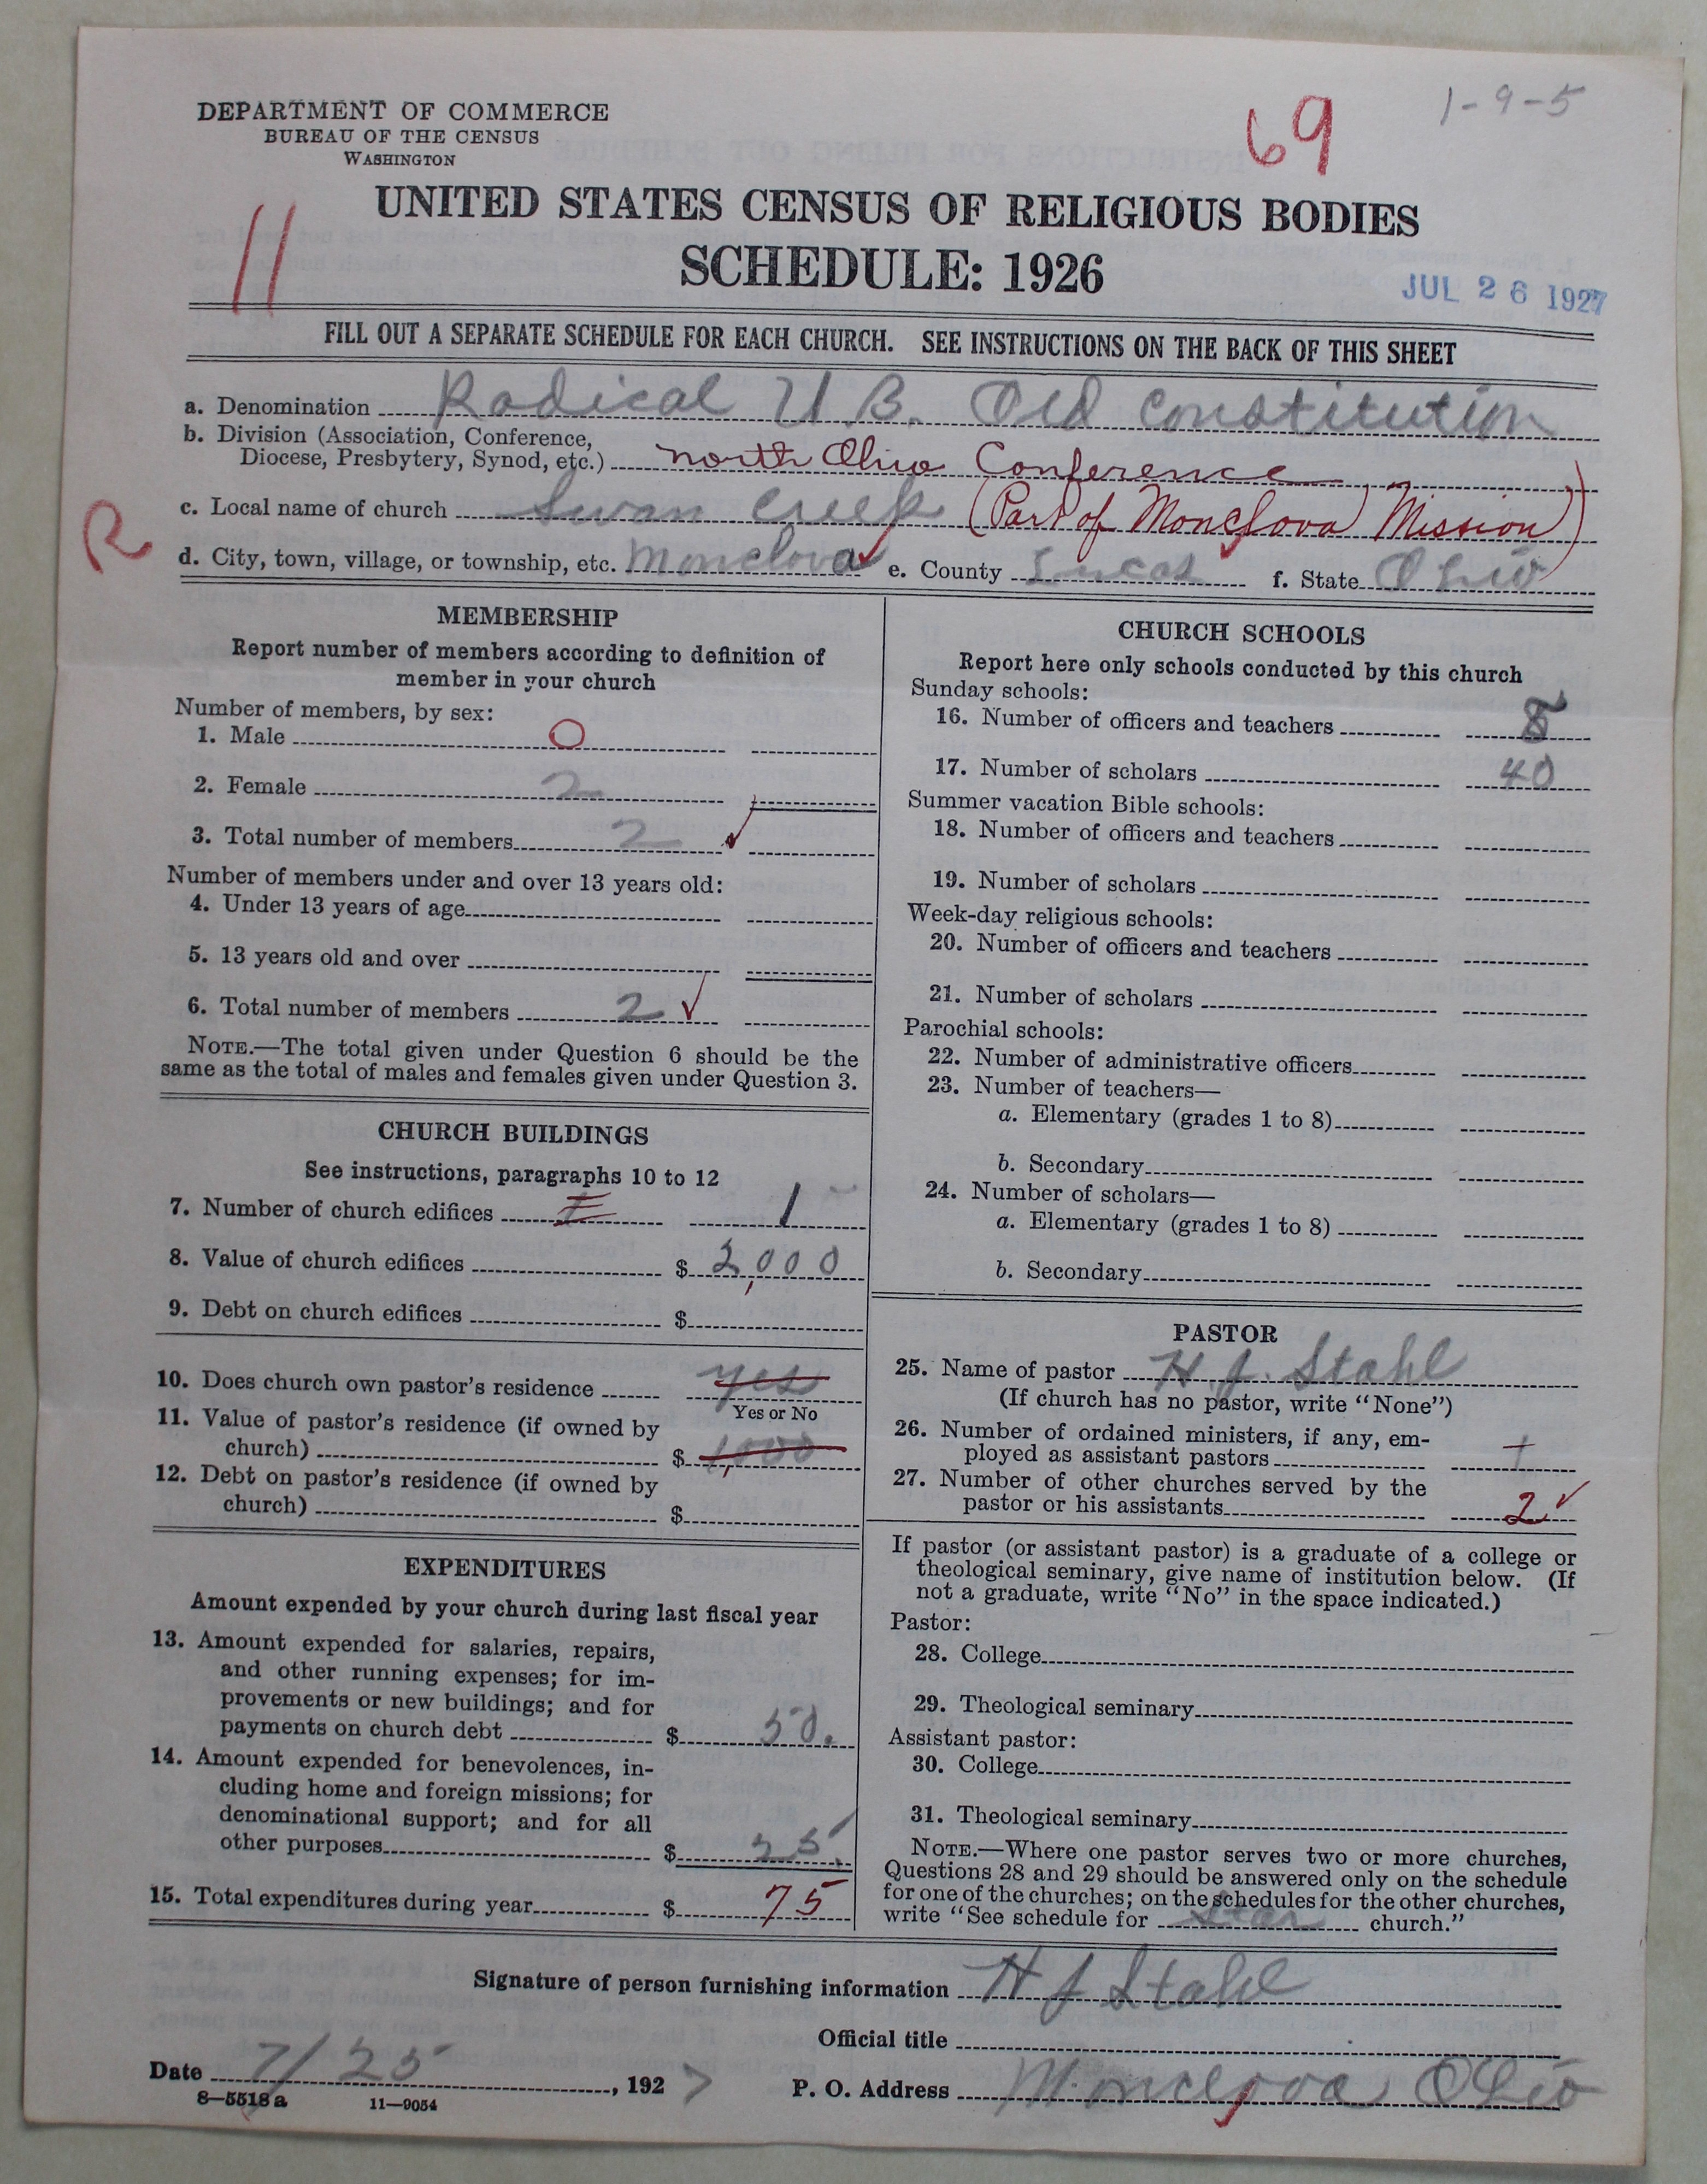 1-9-5
69
DEPARTMENT OF COMMERCE
BUREAU OF THE CENSUS
WASHINGTON
11
UNITED STATES CENSUS OF RELIGIOUS BODIES
SCHEDULE: 1926
JUL 26 1927
FILL OUT A SEPARATE SCHEDULE FOR EACH CHURCH. SEE INSTRUCTIONS ON THE BACK OF THIS SHEET
a. Denomination Radical U.B. Old Constitution
b. Division (Association, Conference,
Diocese, Presbytery, Synod, etc.) North Ohio Conference
c. Local name of church Swan Creek (Part of Monclova Mission)
R
d. City, town, village, or township, etc. Monclova e. County Lucas f. State Ohio
MEMBERSHIP
Report number of members according to definition of
member in your church
Number of members, by sex:
1. Male 0
2. Female 2
3. Total number of members 2 ✓
Number of members under and over 13 years old:
4. Under 13 years of age
5. 13 years old and over
6. Total number of members 2 ✓
NOTE.—The total given under Question 6 should be the
same as the total of males and females given under Question 3.
CHURCH BUILDINGS
See instructions, paragraphs 10 to 12
7. Number of church edifices 1
8. Value of church edifices $ 2,000
9. Debt on church edifices $
10. Does church own pastor's residence yes
Yes or No
11. Value of pastor's residence (if owned by
church) $ 1,000
12. Debt on pastor's residence (if owned by
church) $
EXPENDITURES
Amount expended by your church during last fiscal year
13. Amount expended for salaries, repairs,
and other running expenses; for im-
provements or new buildings; and for
payments on church debt $ 50.
14. Amount expended for benevolences, in-
cluding home and foreign missions; for
denominational support; and for all
other purposes $ 25.
15. Total expenditures during year $ 75
CHURCH SCHOOLS
Report here only schools conducted by this church
Sunday schools:
16. Number of officers and teachers
17. Number of scholars 40
Summer vacation Bible schools:
18. Number of officers and teachers
19. Number of scholars
Week-day religious schools:
20. Number of officers and teachers
21. Number of scholars
Parochial schools:
22. Number of administrative officers
23. Number of teachers—
a. Elementary (grades 1 to 8)
b. Secondary
24. Number of scholars—
a. Elementary (grades 1 to 8)
b. Secondary
PASTOR
25. Name of pastor H. J. Stahl
(If church has no pastor, write "None")
26. Number of ordained ministers, if any, em-
ployed as assistant pastors
27. Number of other churches served by the
pastor or his assistants 2 ✓
If pastor (or assistant pastor) is a graduate of a college or
theological seminary, give name of institution below. (If
not a graduate, write "No" in the space indicated.)
Pastor:
28. College
29. Theological seminary
Assistant pastor:
30. College
31. Theological seminary
NOTE.—Where one pastor serves two or more churches,
Questions 28 and 29 should be answered only on the schedule
for one of the churches; on the schedules for the other churches,
write "See schedule for Star church."
Signature of person furnishing information H J Stahl
Official title
Date 7/25, 1927
P. O. Address Monclova Ohio
8—5518a 11—9054